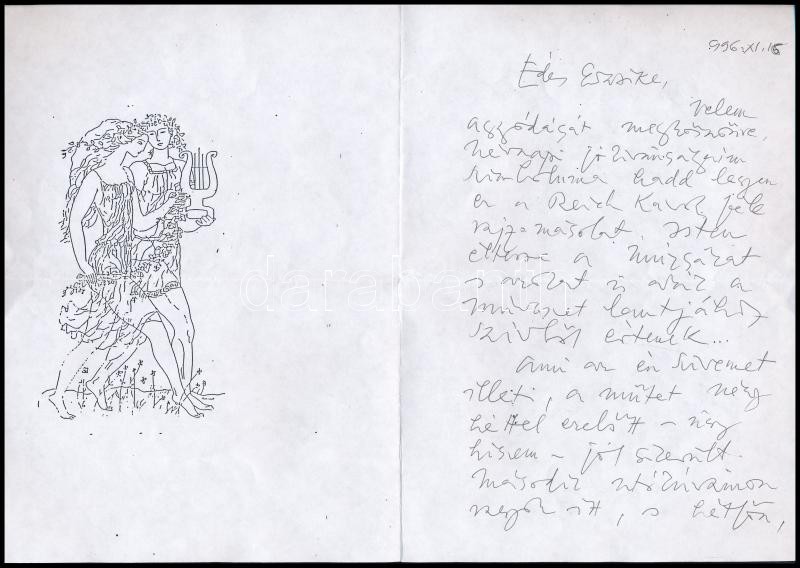 996.XI.15
Édes Eszsike,
velem
aggódását megköszönve,
névnapi jókívánságaim
szimbóluma hadd legyen
ez a Reich Károly féle
rajz-másolat. Isten
éltesse a
s azokat is akik a
művészet lantjához
szívből értenek...
Ami az én szívemet
illeti, a műtét négy
héttel ezelőtt - úgy
hiszem - jól sikerült.
Második utókúrámon
vagyok itt, s hétfőn,
darabanth